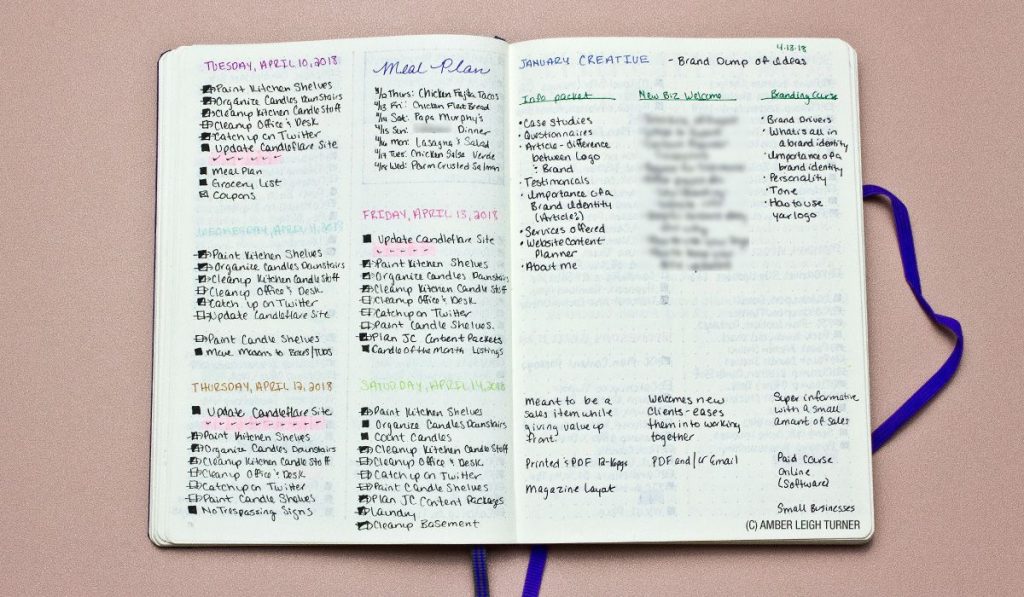 TUESDAY, APRIL 10, 2018
Paint Kitchen Shelves
Organize Candles Downstairs
Cleanup Kitchen Candle Stuff
Cleanup Office's Desk
Catch up on Twitter
Update Candleflare Site
Meal Plan
Grocery List
Coupons
WEDNESDAY, APRIL 11, 2018
Paint Kitchen Shelves
Organize Candles Downstairs
Cleanup Kitchen Candle Stuff
Cleanup Office's Desk
Catch up on Twitter
Update Candleflare Site
Paint Candle Shelves
Move Macros to
THURSDAY, APRIL 12, 2018
Update Candleflare Site
Paint Kitchen Shelves
Organize Candles Downstairs
Cleanup Kitchen Candle Stuff
Cleanup Office's Desk
Catch up on Twitter
Paint Candle Shelves
No Trespassing Signs
Meal Plan
Thurs: Chicken Fajita Tacos
4/13 Fri: Chicken Flat Bread
4/14 Sat: Papa Murphy's
4/15 Sun: Dinner
4/16 Mon: Lasagna & Salad
4/17 Tue: Chicken Salsa Verde
4/18 Wed: Parm Crusted Salmon
FRIDAY, APRIL 13, 2018
Update Candleflare Site
Paint Kitchen Shelves
Organize Candles Downstairs
Cleanup Kitchen Candle Stuff
Cleanup Office's Desk
Catch up on Twitter
Paint Candle Shelves.
Plan JC Content Packets
Candle of the Month Listings
SATURDAY, APRIL 14, 2018
Paint Kitchen Shelves
Organize Candles Downstairs
Count Candles
Cleanup Kitchen Candle Stuff
Cleanup Office's Desk
Catch up on Twitter
Paint Candle Shelves
Plan JC Content Packages
Laundry
Cleanup Basement
4.13.18
JANUARY CREATIVE - Brand Dump of Ideas
Info packet
• Case Studies
• Questionnaires
• Article - difference
between Logo
& Brand
• Testimonials
• Importance of a
Brand Identity
(Article?)
• Services offered
• Website Content
Planner
• About me
Meant to be a
sales item while
giving value up
front.
Printed & PDF 12-16pgs
Magazine Layout
New Biz Welcome
Welcomes new
Clients - eases
them into working
together
PDF and/or Email
Branding Course
• Brand Drivers
• What's all in
a brand identity
• Importance of a
brand identity
• Personality
• Tone
• How to use
your logo
Super informative
with a small
amount of sales
Paid Course
Online
(Software)
Small Businesses
(C) AMBER LEIGH TURNER